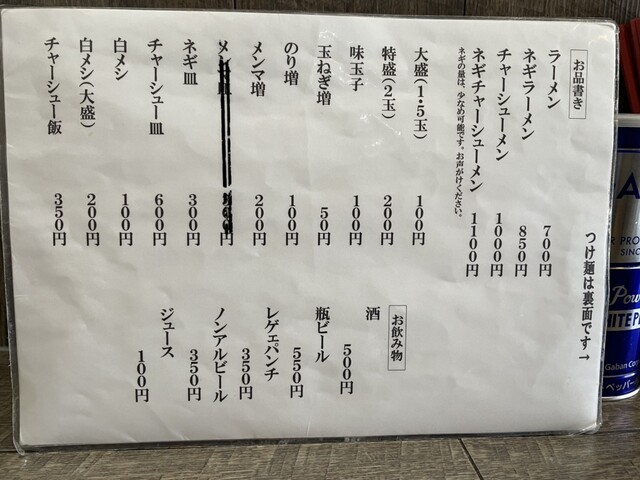 お品書き
ラーメン 700円
ネギラーメン 850円
チャーシューメン 1000円
ネギチャーシューメン 1100円
ネギの量は、少なめ可能です。お声がけください。
つけ麺は裏面です→
大盛(1・5玉) 100円
特盛(2玉) 200円
味玉子 100円
玉ねぎ増 50円
のり増 100円
メンマ増 200円
ネギ皿 300円
チャーシュー皿 600円
白メシ 100円
白メシ(大盛) 200円
チャーシュー飯 350円
お飲み物
酒 500円
瓶ビール 550円
レゲェパンチ 350円
ノンアルビール 350円
ジュース 100円
Gaban
ペッパー